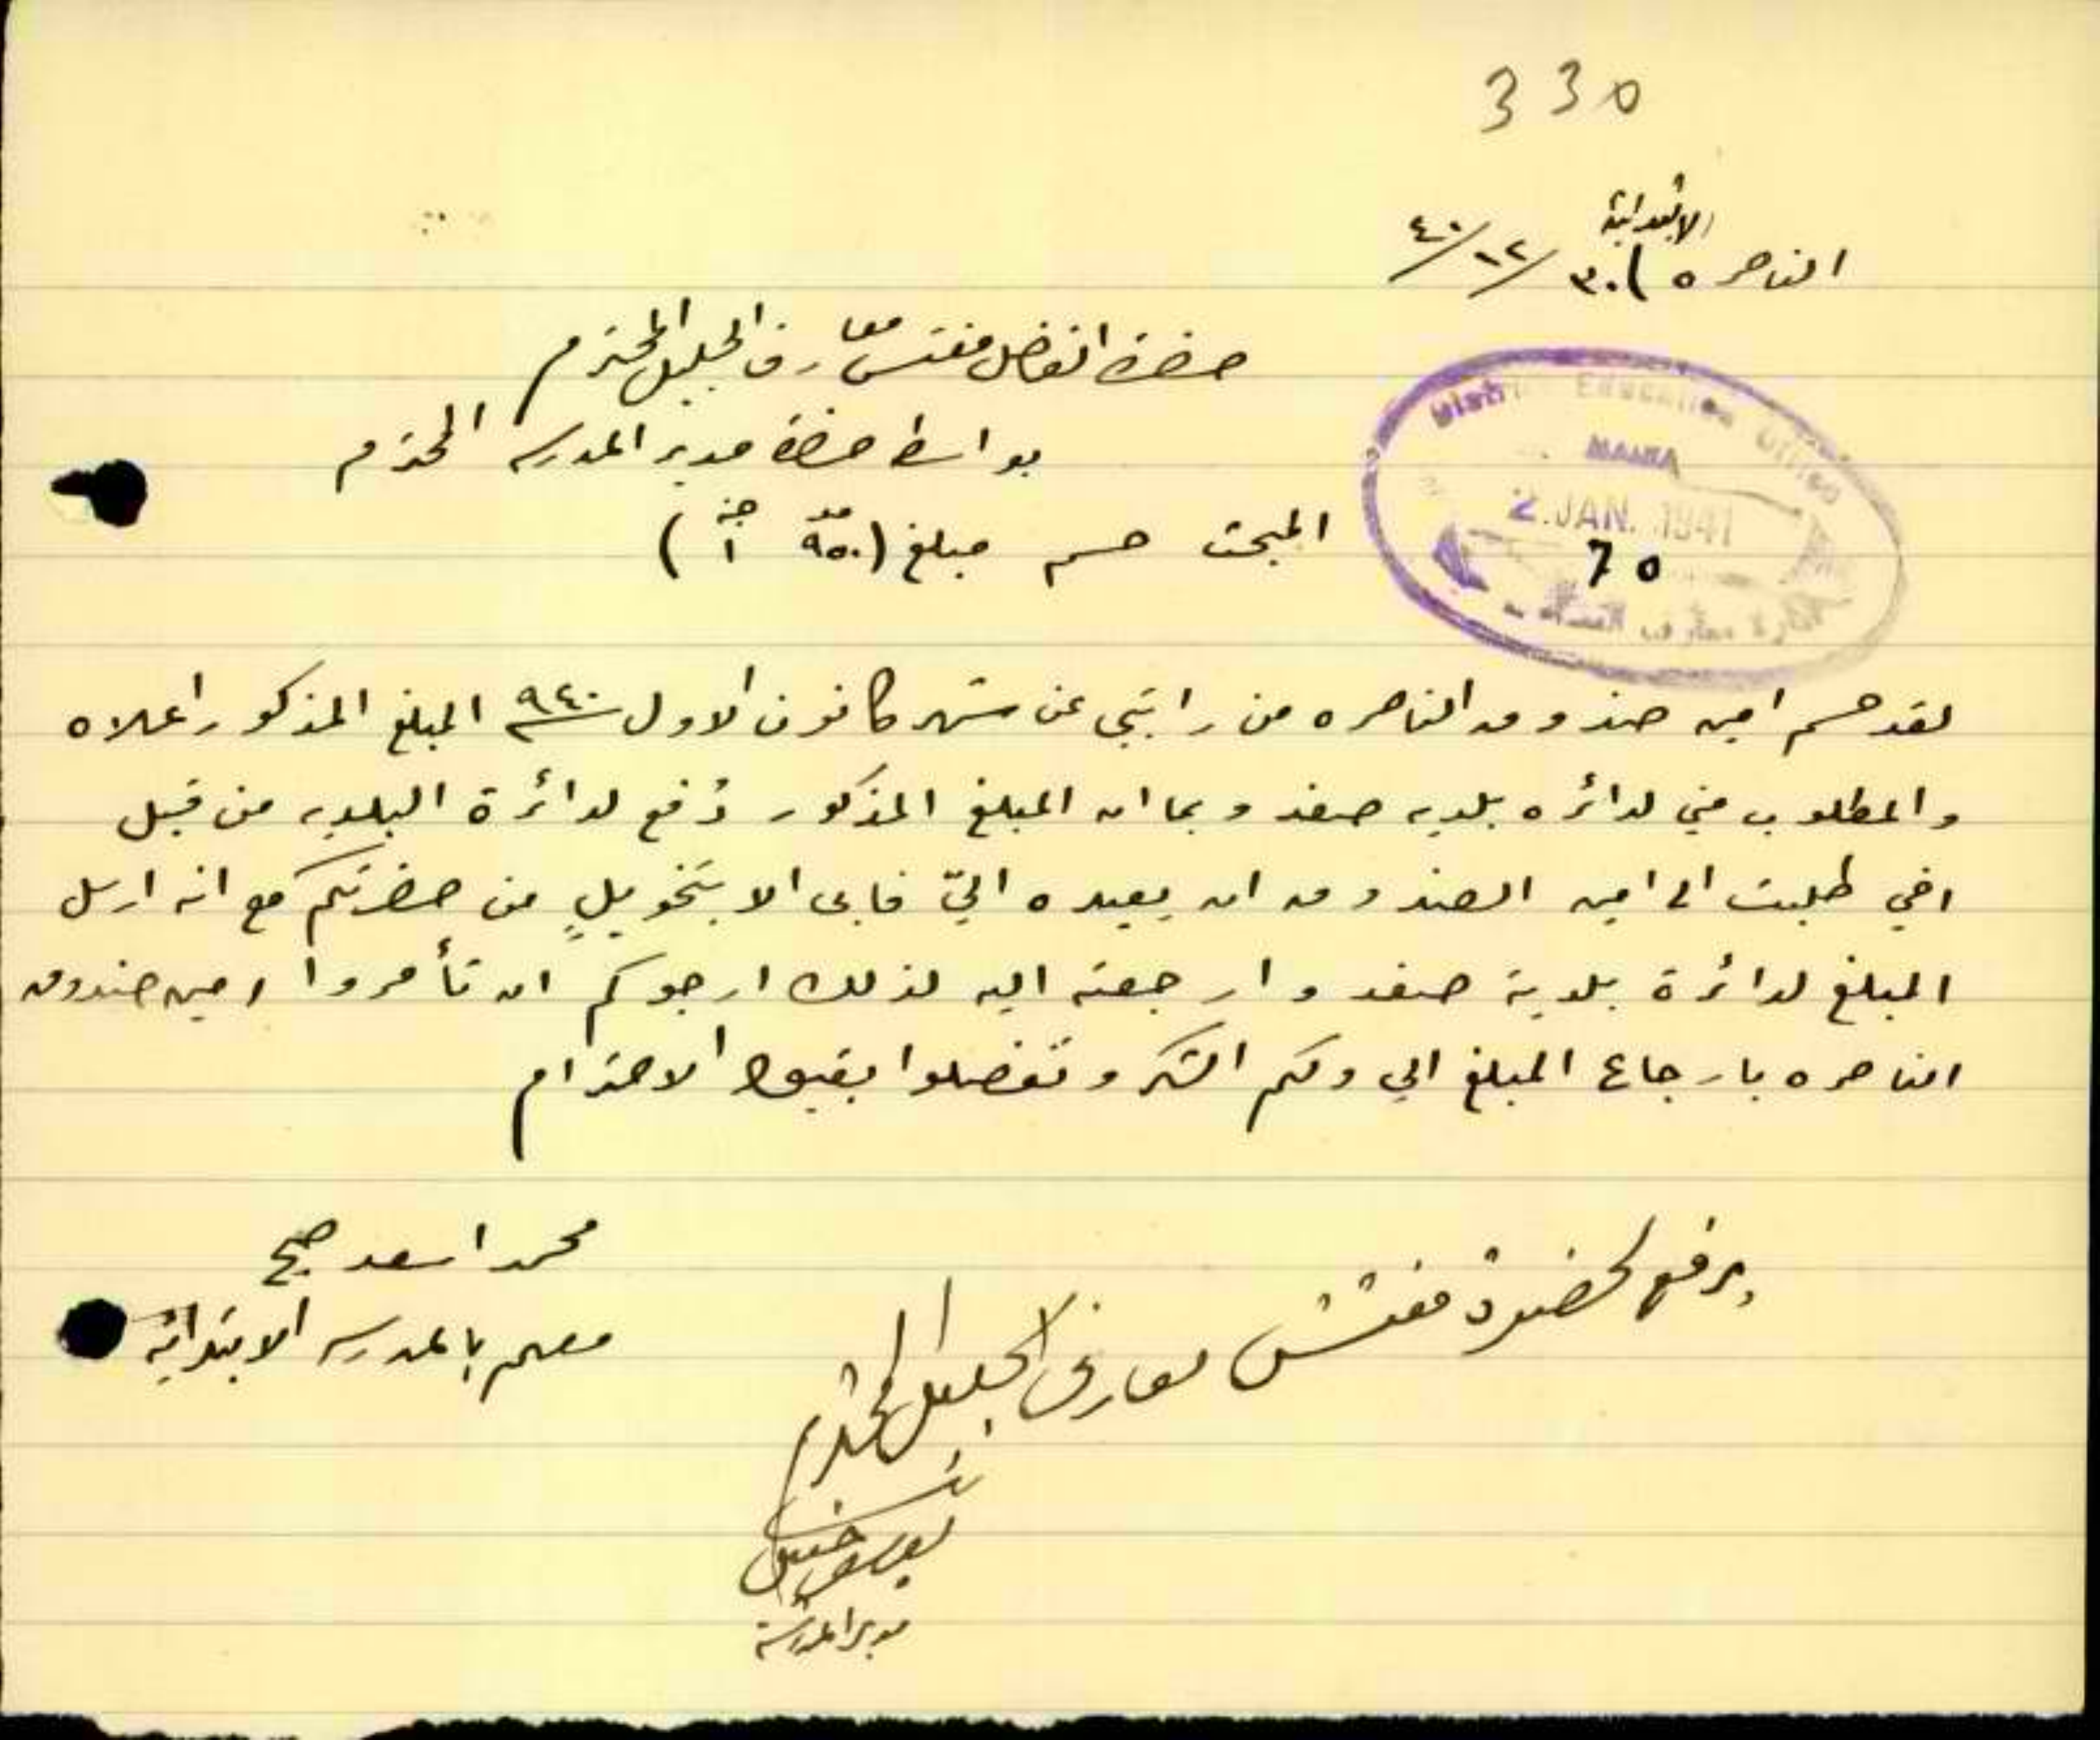 330
الابتدائية
الناصره ٣٠/١٢/٤٠
حضرة الفاضل مفتش معارف الجليل المحترم
بواسطة حضرة مدير المدرسه المحترم
District Education Office
2.JAN.1941
70
المبحث حسم مبلغ (٩٥٠ مل ١ جنيه)
لقد حسم امين صندوق الناصره من راتبي عن شهر كانون الاول سنة ٩٤٠ المبلغ المذكور اعلاه
والمطلوب مني لدائره بلديه صفد وبما ان المبلغ المذكور دُفع لدائرة البلديه من قبل
اخي طلبت الى امين الصندوق ان يعيده اليّ فابى الا بتخويلٍ من حضرتكم مع انه ارسل
المبلغ لدائرة بلدية صفد وارجعته اليه لذلك ارجوكم ان تأمروا امين صندوق
الناصره بارجاع المبلغ الي ولكم الشكر وتفضلوا بقبول الاحترام
محمد اسعد صبح
معلم بالمدرسه الابتدائيه
يرفع لحضرة مفتش معارف الجليل المحترم
مدير المدرسة